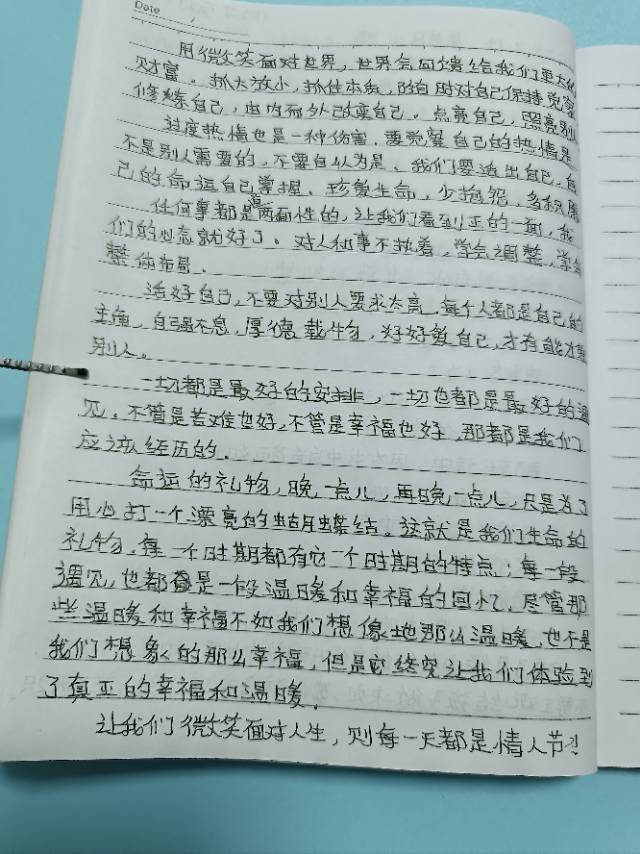 Date
用微笑面对世界，世界会回馈给我们更大的
财富。抓大放小，抓住本质，随时对自己保持觉察
修炼自己，由内而外改变自己。点亮自己，照亮别
过度热情也是一种伤害，要觉察自己的热情是
不是别人需要的，不要自以为是。我们要活出自己，自
己的命运自己掌握。珍爱生命，少抱怨，多积
任何事都是两面性的，让我们看到正的一面，我
们的心态就好了。对人和事不执着，学会调整，学会
整体布局。
活好自己，不要对别人要求太高，每个人都是自己的
主角，自强不息，厚德载物，好好做自己，才有能力
别人。
一切都是最好的安排，一切也都是最好的遇
见。不管是苦难也好，不管是幸福也好，那都是我们
应该经历的。
命运的礼物，晚一点儿，再晚一点儿，只是为了
用心打一个漂亮的蝴蝶结。这就是我们生命的
礼物，每一个时期都有它一个时期的特点；每一段
遇见，也都是一段温暖和幸福的回忆，尽管那
些温暖和幸福不如我们想像地那么温暖，也不是
我们想象的那么幸福，但是它终究让我们体验到
了真正的幸福和温暖。
让我们微笑面对人生，则每一天都是情人节！